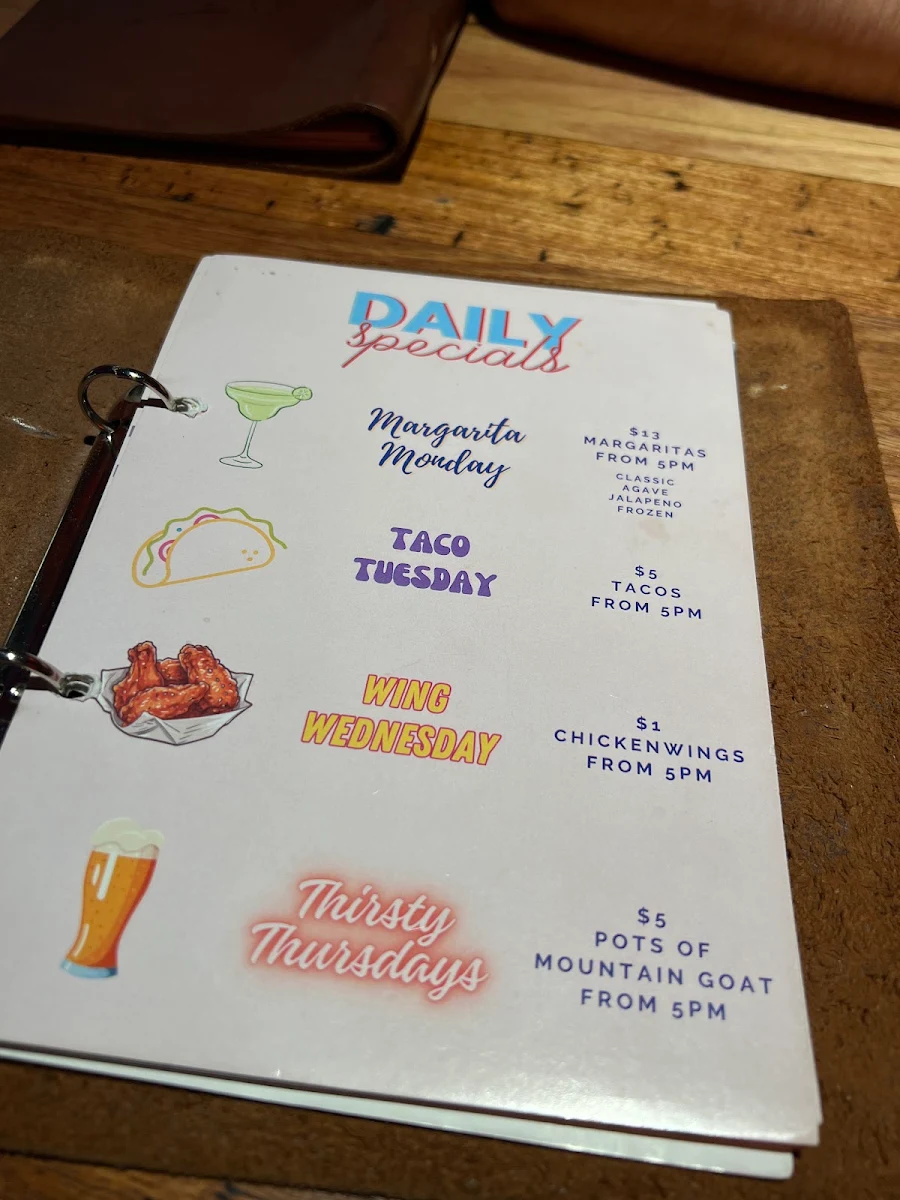 DAILY
specials
Margarita
Monday
$13
MARGARITAS
FROM 5PM
CLASSIC
AGAVE
JALAPENO
FROZEN
TACO
TUESDAY
$5
TACOS
FROM 5PM
WING
WEDNESDAY
$1
CHICKENWINGS
FROM 5PM
Thirsty
Thursdays
$5
POTS OF
MOUNTAIN GOAT
FROM 5PM